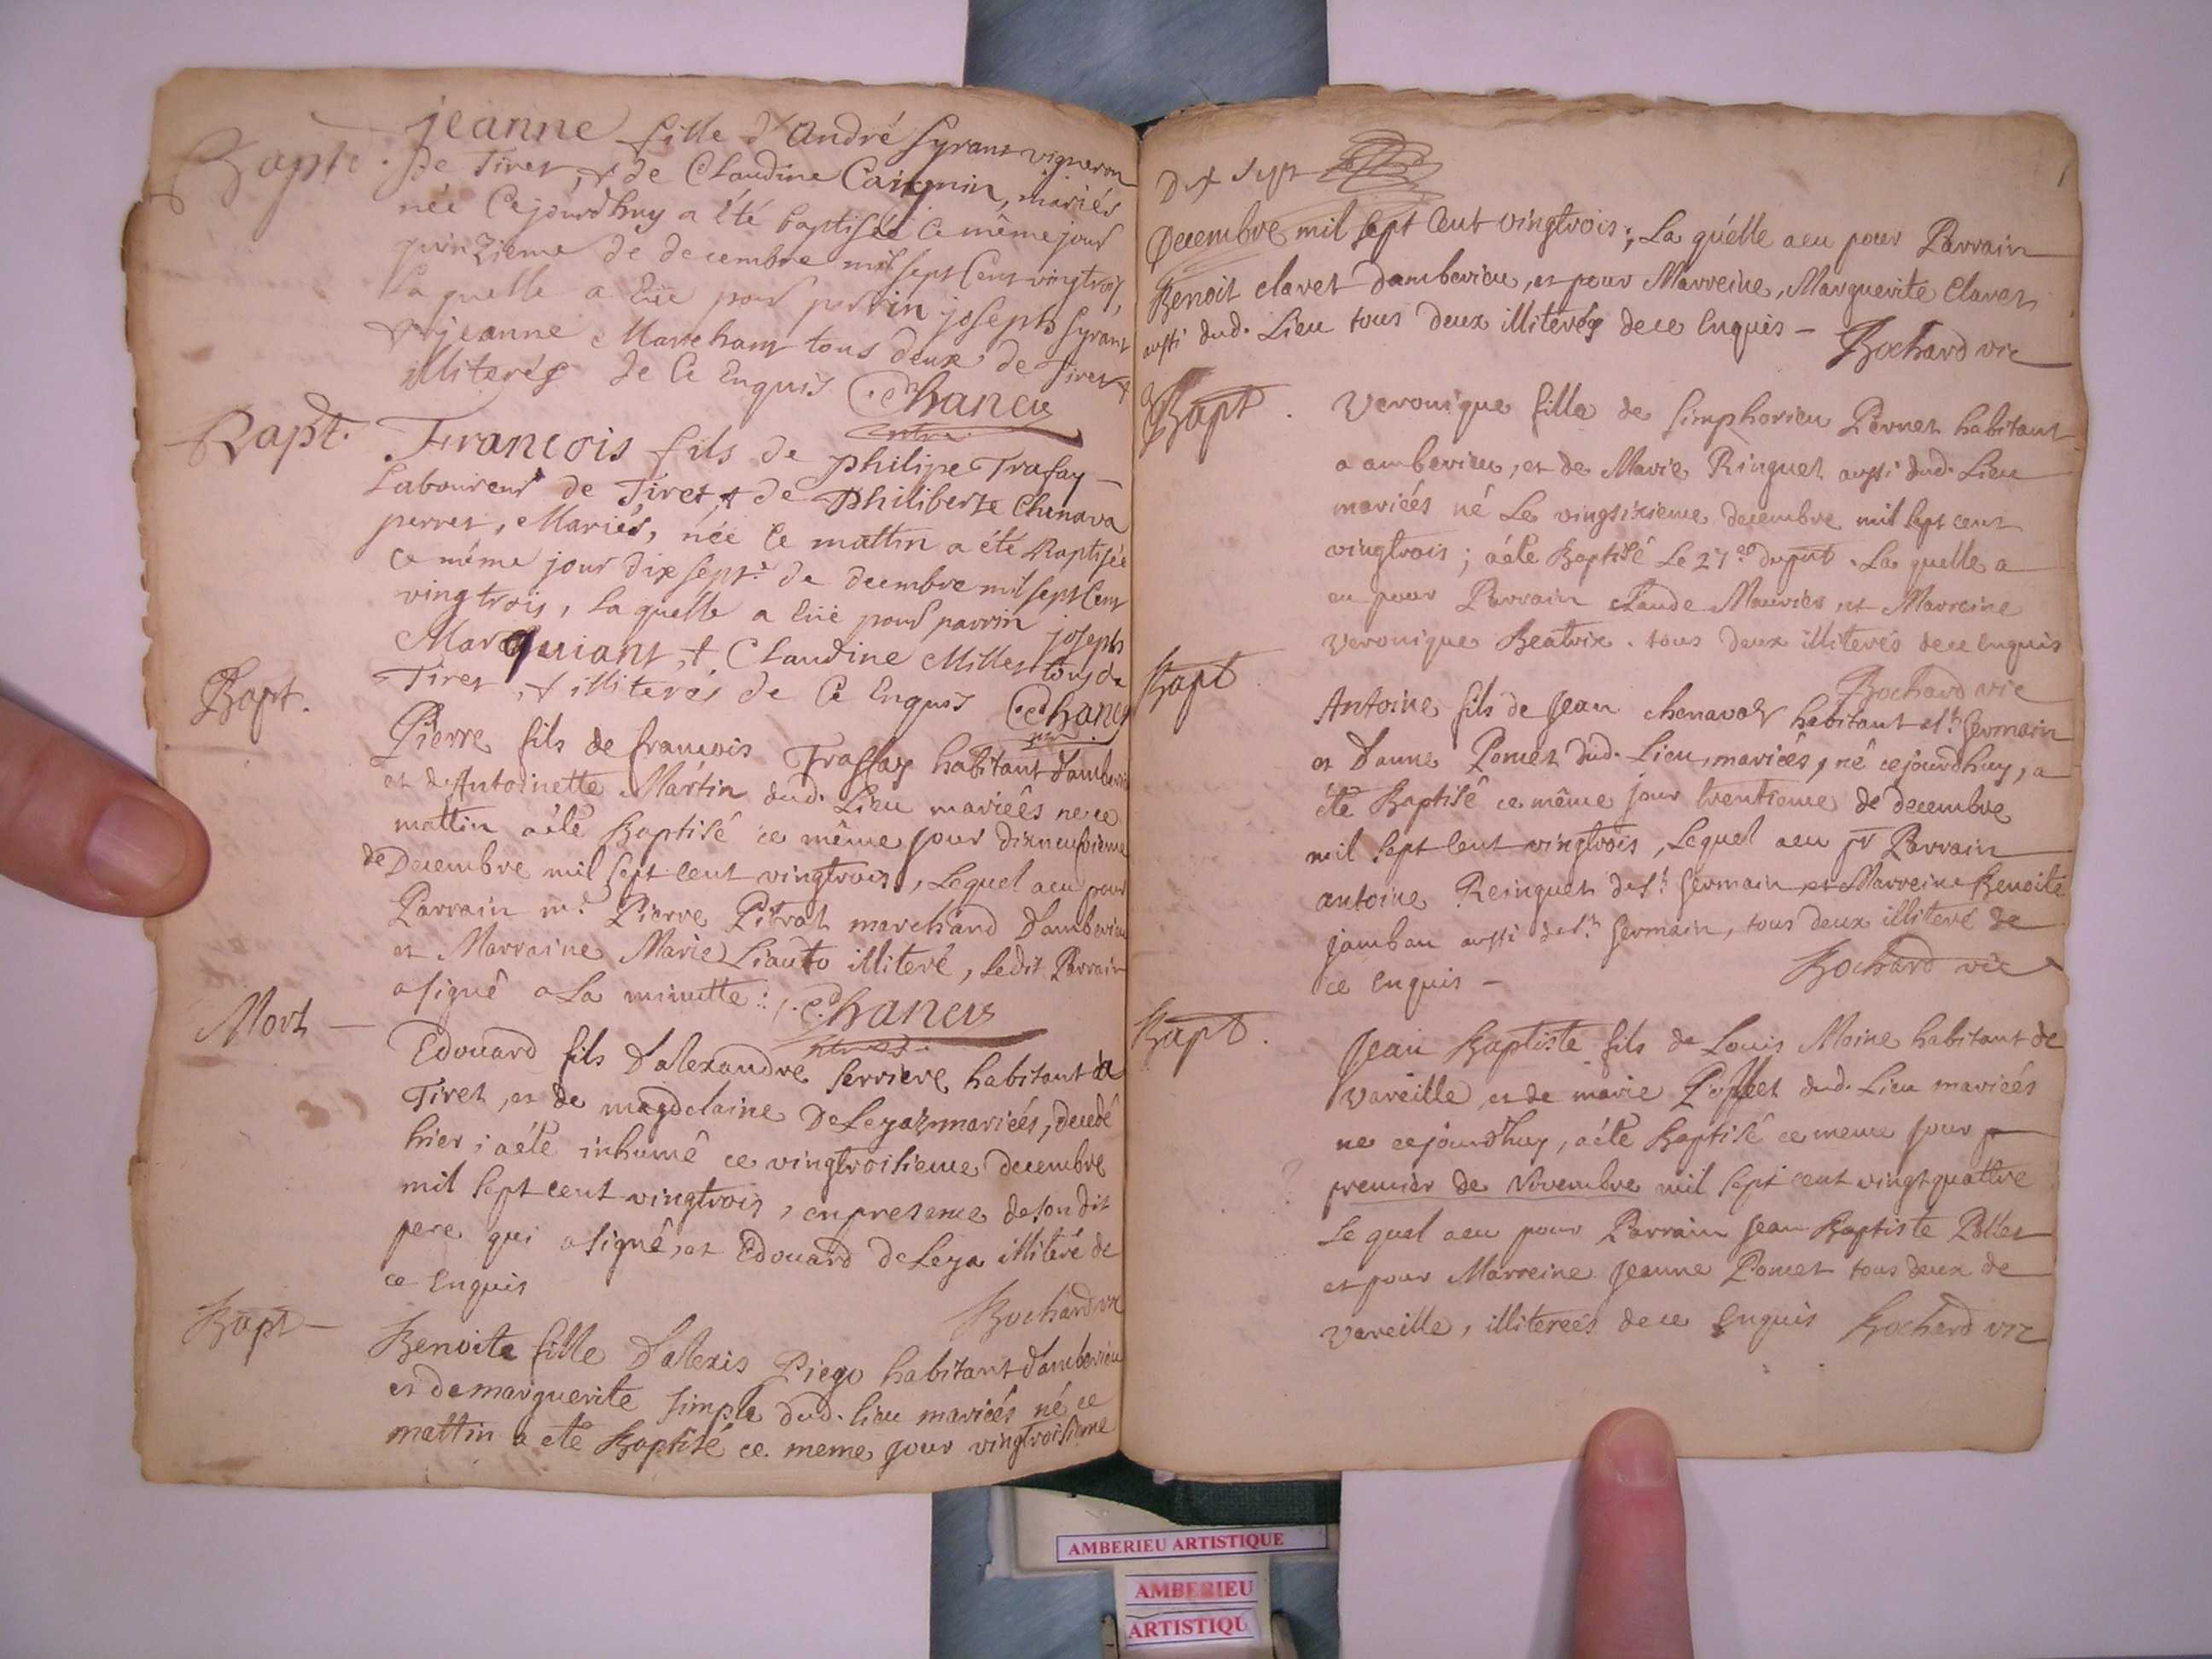 Bapt. jeanne fille d'André Syrant vigneron
de Tiret, & de Claudine mariés
née Cejourdhuy a été baptisée le même jour
quinzieme de decembre mil sept Cent vingtrois,
laquelle a Eüe pour parrin joseph Syrant
& jeanne Marchant tous deux de Tiret &
illiterés de Ce Enquis
Bapt. Francois fils de philipe Trafay
Laboureur de Tiret, & de Philiberte Chenava
perret, Mariés, née Ce mattin a été Baptisée
ce même jour dix sept.e de decembre mil sept Cent
vingtrois, laquelle a Eüe pour parrin joseph
Marquiant, & Claudine Millet tous de
Tiret, & illiterés de Ce Enquis
Bapt. Pierre fils de francois Traffay habitant d'amberieu
et de Antoinette Martin dud. Lieu mariéés ne ce
mattin aété Baptisé ce même jour dixneufvieme
de Decembre mil sept cent vingtrois, Lequel a eu pour
Parrain m.e Pierre Pitrat marchand d'amberieu
et Marraine Marie Liauto illiteré, ledit Parrain
a signé a La minutte
Mort Edouard fils d'alexandre Serriere habitant a
Tiret, et de magdelaine De Leya mariéés, decedé
hier ; aété inhumé ce vingtroisieme decembre
mil sept cent vingtrois, en presence de son dit
pere qui a signé, et Edouard de Leya illiteré de
ce Enquis
Bochard vic
Bapt Benoite fille d'alexis Piego habitant d'amberieu
et de marguerite simple dud. lieu mariéés né ce
mattin a été Baptisé ce meme jour vingtroisieme
Dix sept
Decembre mil sept Cent vingtrois ; La quélle a eu pour Parrain
Benoit claret d'amberieu, et pour Marreine, Marguerite Claret
aussi dud. Lieu tous deux illiterés de ce Enquis -
Bochard vic
Bapt. Veronique fille de Simphorien Pernet habitant
a amberieu, et de Marie Ringuet aussi dud. Lieu
mariéés né Le vingsixieme decembre mil sept cent
vingtrois ; aété Baptisé Le 27.e du pnt. La quelle a
eu pour Parrain Claude Mauriés, et Marreine
Veronique Beatrix. tous deux illiterés de ce Enquis
Bochard vic
Bapt Antoine fils de Jean chenavas habitant a St. Germain
et d'anne Poncet dud. Lieu, mariéés, né cejourdhuy, a
été Baptisé ce même jour trentieme de decembre
mil sept cent vingtrois, Lequel a eu pr Parrain
antoine Reinguet de St. Germain et Marreine Benoite
jambau aussi de St. Germain, tous deux illiteré de
ce Enquis -
Bochard vic
Bapt. Jean Baptiste fils de Louis Moine habitant de
Vareille et de marie dud. Lieu mariéés
ne cejourdhuy, aété Baptisé ce meme jour
premier de Novembre mil sept cent vingt quattre
Le quel a eu pour Parrain Jean Baptiste Pollet
et pour Marreine Jeanne Poncet tous deux de
Vareille, illitereés de ce Enquis Bochard vic
AMBERIEU ARTISTIQUE
AMBERIEU
ARTISTIQU